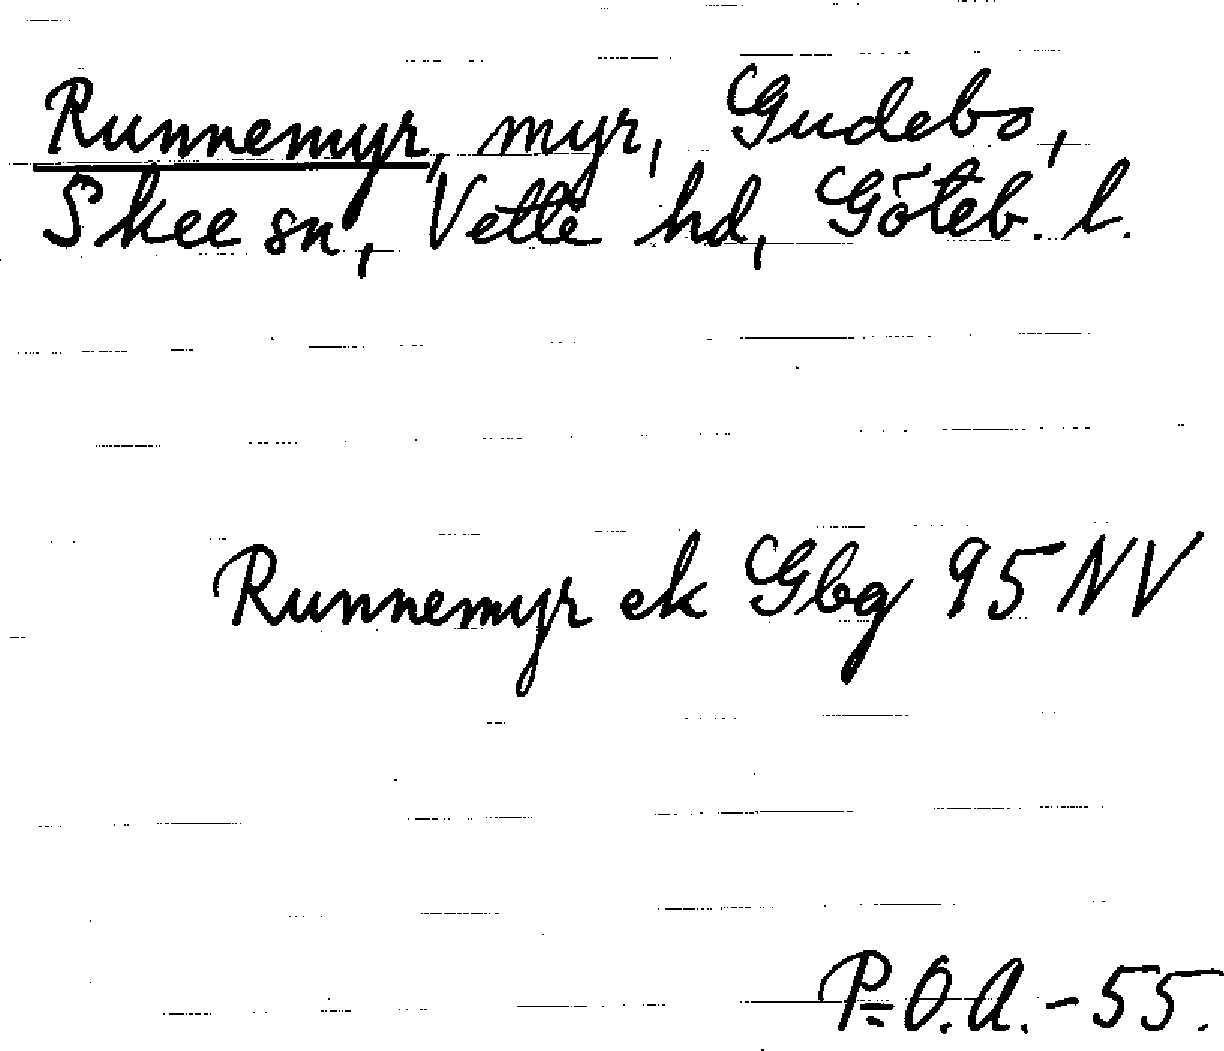 Runnemyr, myr, Gudebo,
Skee sn, Vette hd, Göteb. l.
Runnemyr ek Gbg 95 NV
P=O.A.-55.